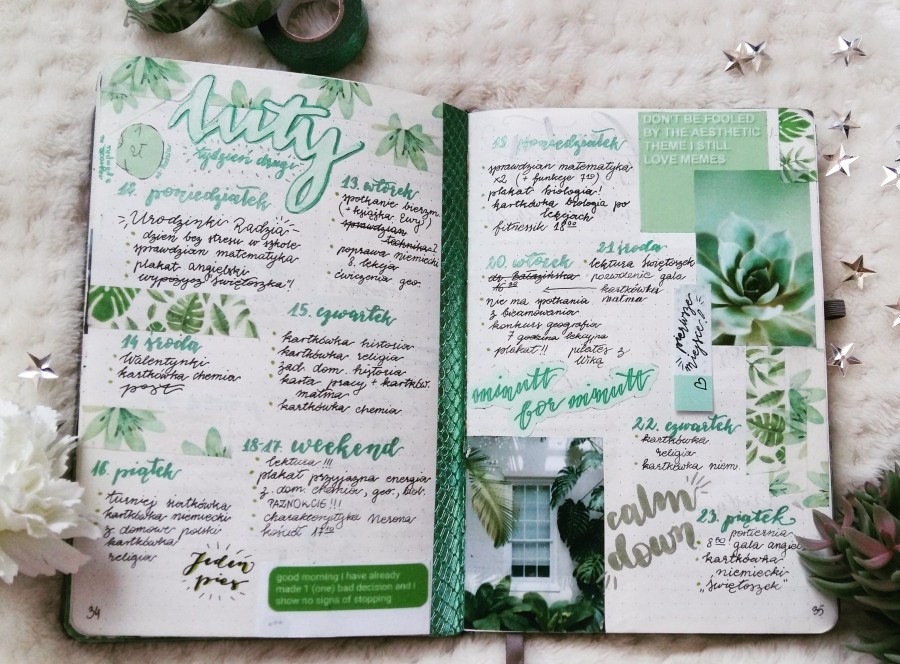 luty
tydzień drugi
12. poniedziałek
Urodzinki Radzia
dzień bez stresu w szkole
sprawdzian matematyka
plakat angielski
wyprzęg "świętoszka"!
13. wtorek
spotkanie bierzm.
(+ książka Ewy)
sprawdzian
technika?
poprawa niemiecki
8. lekcja
ćwiczenia geo.
14 środa
Walentynki
kartkówka chemia
post
15. czwartek
kartkówka historia
kartkówka religia
zad. dom. historia
karta pracy + kartków.
matma
kartkówka chemia
16. piątek
turniej siatkówka
kartkówka niemiecki
z domowe polski
kartkówka
religia
Jeden
pies
18-17. weekend
lektura !!!
plakat przyjazna energia
z. dom. chemia, geo, biol.
PAZNOKCIE!!!
charakterystyka Nerona
kościół 17
good morning i have already
made 1 (one) bad decision and i
show no signs of stopping
34
19. poniedziałek
sprawdzian matematyka
x2 (+ funkcje 7)
plakat biologia!
kartkówka biologia po
lekcjach
fitnessik 18
DON'T BE FOOLED
BY THE AESTHETIC
THEME I STILL
LOVE MEMES
20. wtorek
16
nie ma spotkania
z bierzmowania
konkurs geografia
7 godzina lekcyjna
plakat!!
pilates z
Wiką
21 środa
lektura świętoszek
powodzenie gala
kartkówka
matma
pierwsze
miejsce!
minutt
for minutt
22. czwartek
kartkówka
religia
kartkówka niem.
calm
down
23. piątek
8 gala angiel.
kartkówka
niemiecki
"świętoszek"
35